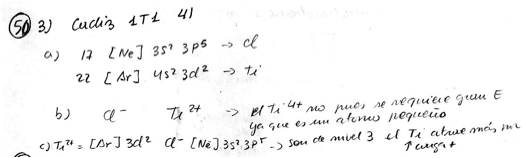 50 3) Cádiz 1T1 41
a) 17 [Ne] 3s² 3p⁵ → cl
22 [Ar] 4s² 3d² → ti
b) cl⁻ Ti²⁺ → el Ti⁴⁺ no pues se requiere gran E
ya que es un átomo pequeño
c) Ti²⁺ = [Ar] 3d² cl⁻ [Ne] 3s² 3p⁵ → son de nivel 3 el Ti atrae más
↑ carga +